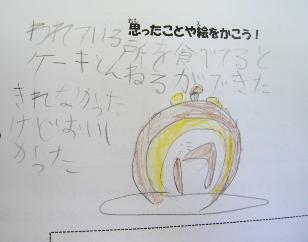 思ったことや絵をかこう！
われている所を食べてると
ケーキとんねるができた
きれなかった
けどおいし
かった